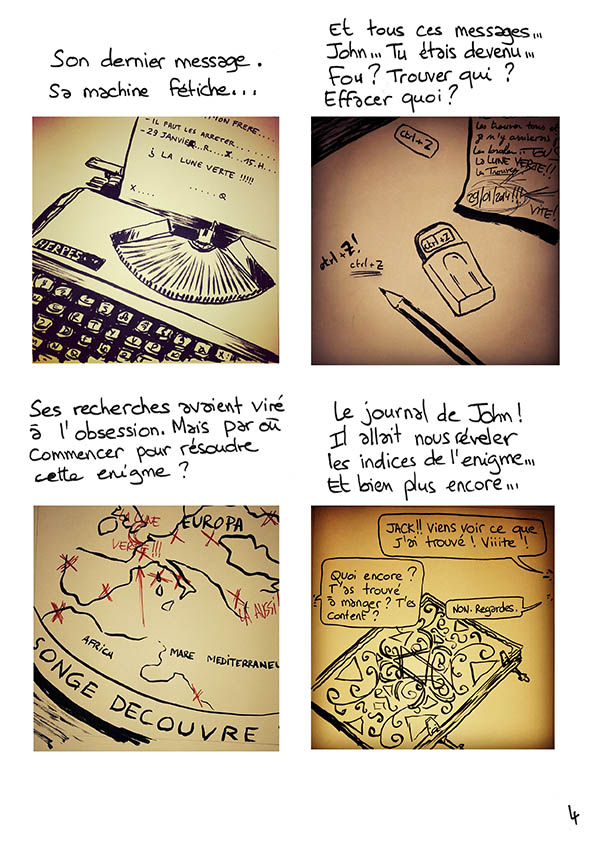 Son dernier message.
Sa machine fétiche...
MON FRERE...
- IL FAUT LES ARRETER.....
- 29 JANVIER..R...X...15.H...
LA LUNE VERTE !!!!!
X.... .....Q
HERPES...
Et tous ces messages...
John... Tu étais devenu...
Fou? Trouver qui ?
Effacer quoi?
ctrl+Z
Les trouver tous et
LA LUNE VERTE!!
29/01/2014!!!
VITE!
ctrl+Z
ctrl+Z!
ctrl+Z
Ses recherches avaient viré
à l'obsession. Mais par où
commencer pour résoudre
cette enigme ?
LA LUNE
VERTE!!!
EUROPA
LÀ AUSSI!
AFRICA
MARE MEDITERRANEU
SONGE DECOUVRE
Le journal de John!
Il allait nous réveler
les indices de l'enigme...
Et bien plus encore...
JACK!! Viens voir ce que
j'ai trouvé! Viiite!!
Quoi encore ?
T'as trouvé
à manger? T'es
content ?
NON. Regardes.
4